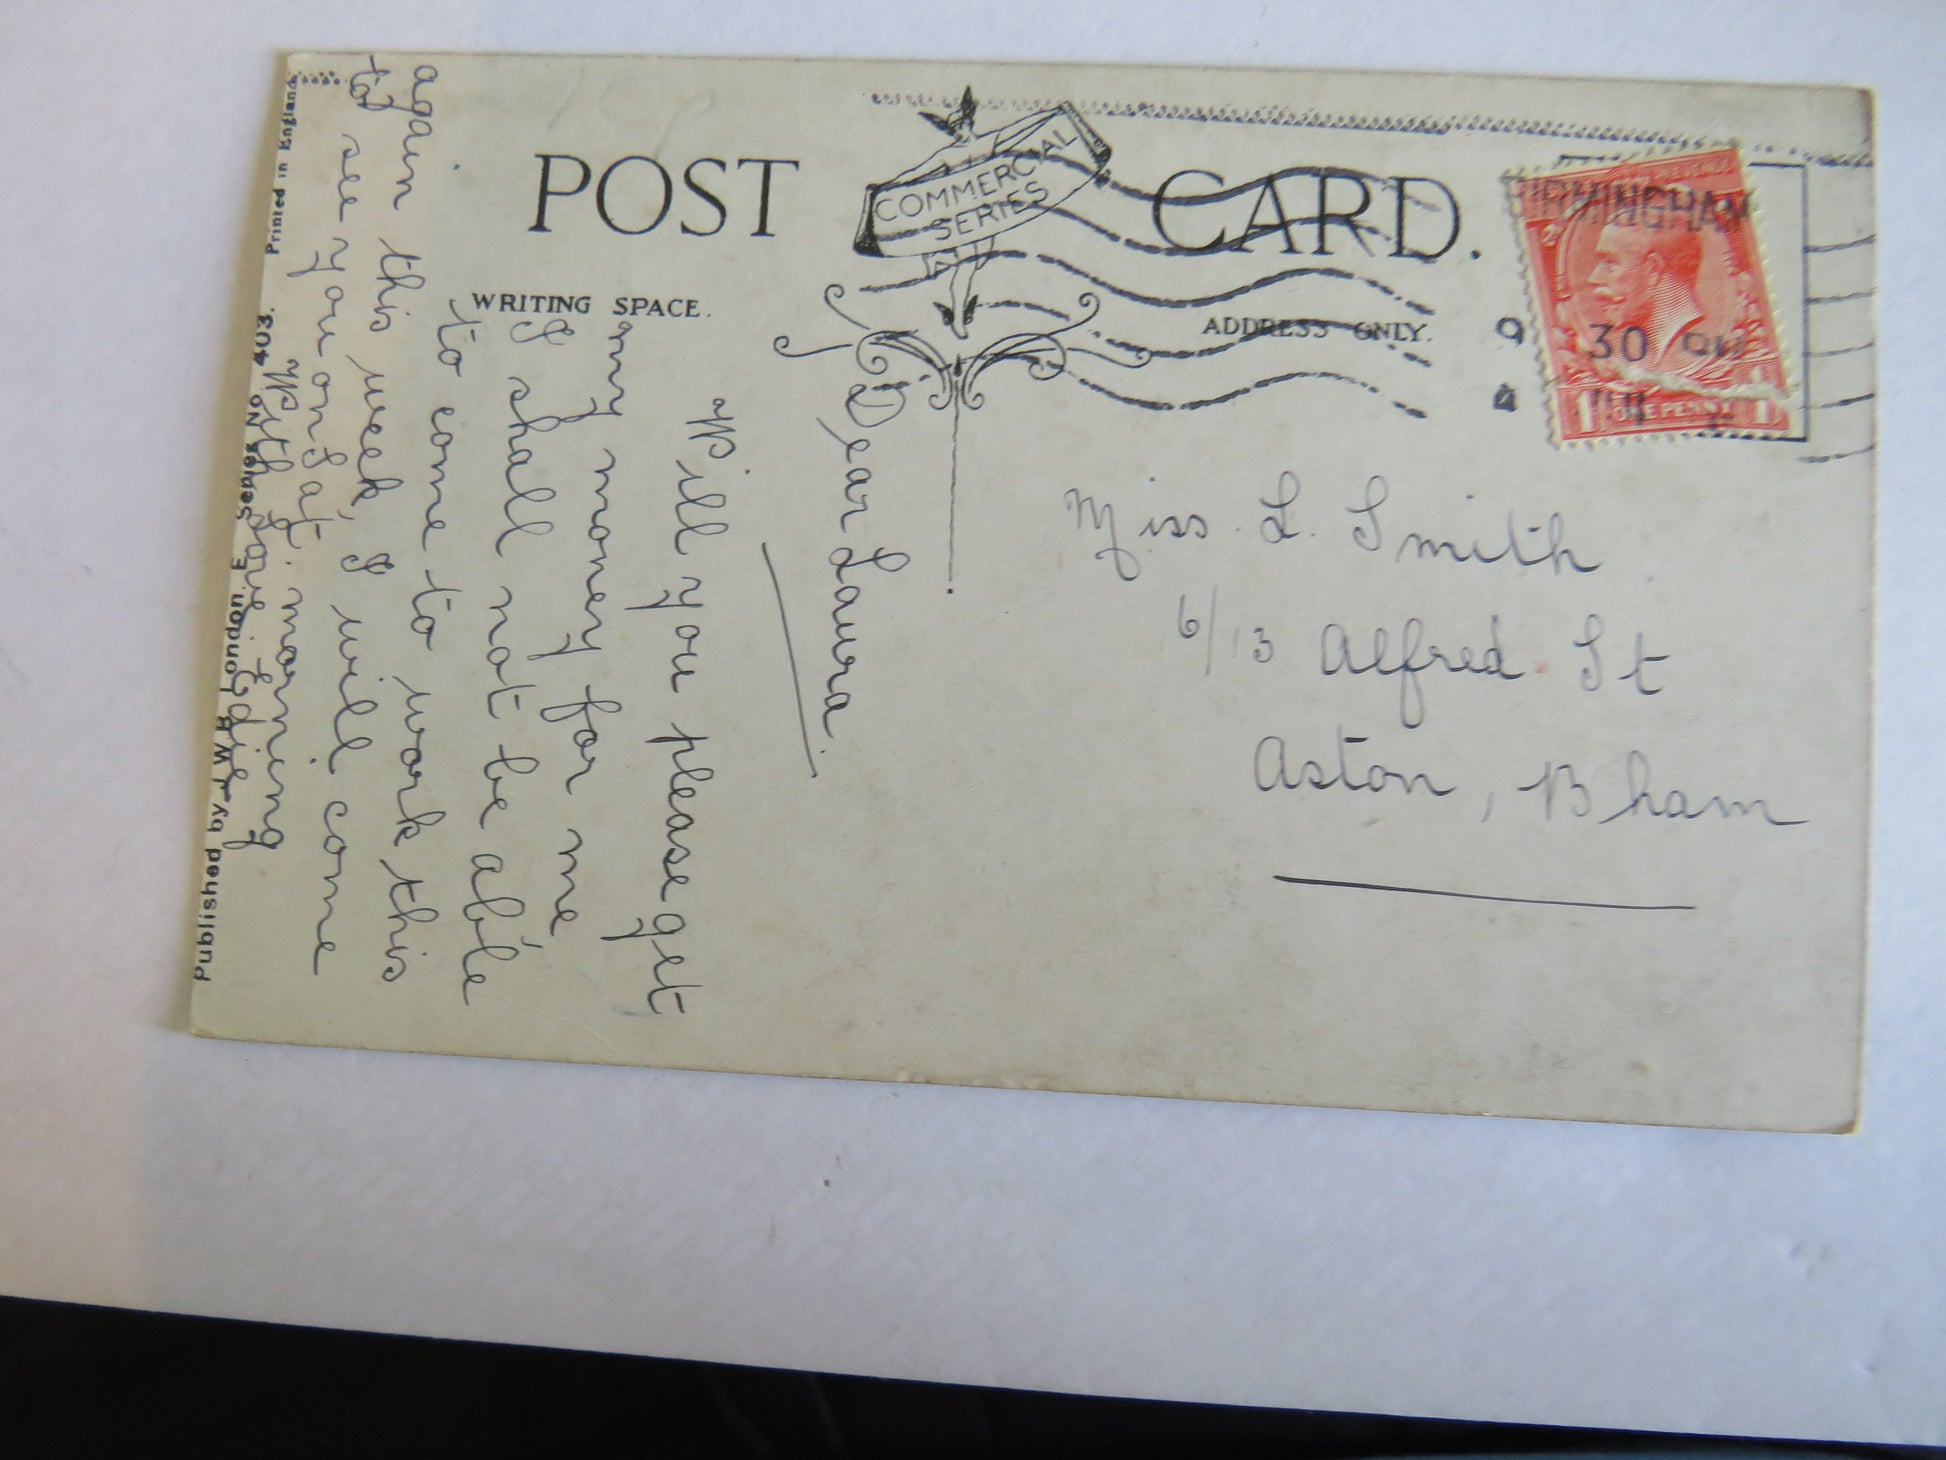 POST CARD.
COMMERCIAL
SERIES
WRITING SPACE.
ADDRESS ONLY.
BIRMINGHAM
9 30 PM
4 JUL
ONE PENNY
Miss. L. Smith
6/13 Alfred St
Aston, Bham
Dear Laura.
Will you please get
my money for me
I shall not be able
to come to work this
again this week, I will come
to see you on Sat. morning
With Love Edie
Published by J.W.B. London. E. Series No. 403. Printed in England.